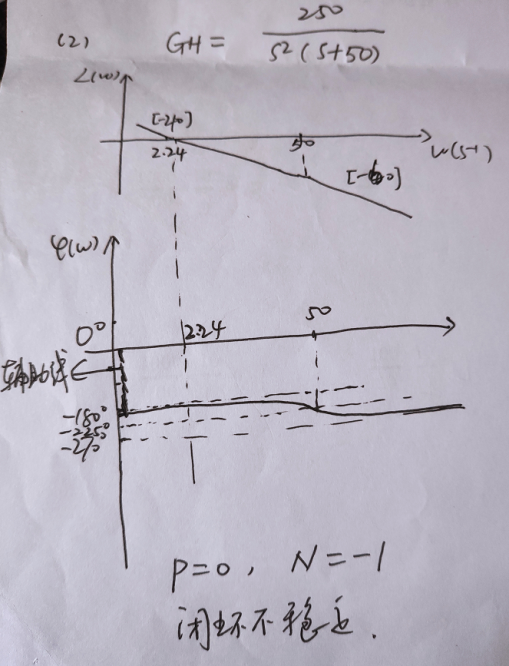 (2) GH = 250 / s²(s+50)
L(ω)
[-40]
2.24 50 ω(s-1)
[-60]
φ(ω)
0° 2.24 50
辅助线
-180°
-225°
-270
P=0, N=-1
闭环不稳定.